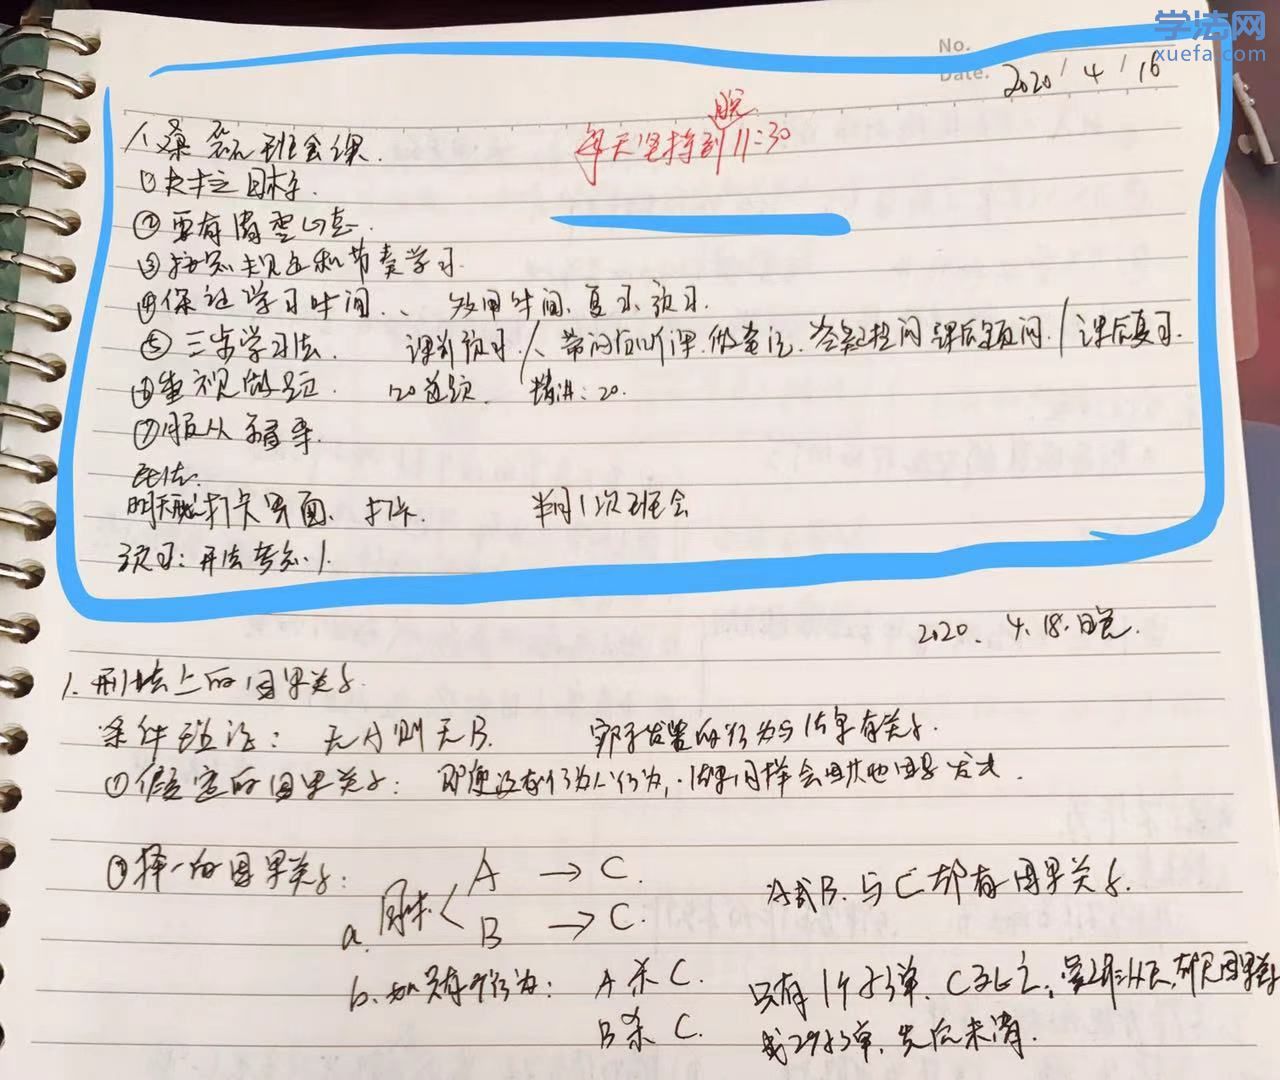 学法网
xuefa.com
No.
Date. 2020 / 4 / 16
班会课.
每天坚持到晚11:30
① 树立目标.
② 要有清空心态.
③ 按照规定和节奏学习.
④ 保证学习时间、 利用午间、复习、预习.
⑤ 三步学习法. 课前预习 / 带问听课.做笔记. 提问 课后 问 / 课后复习.
⑥ 重视做题. 20道题. 精讲:20.
⑦ 服从
民法.
明天 打卡界面. 打卡. 半月1次班会
预习:刑法 1.
2020. 4. 18. 晚.
1. 刑法上的因果关系.
条件理论: 无A则无B. 实行发生的行为与结果有关系.
① 假定的因果关系: 即便没有行为人行为,结果同样会由其他因果发生.
② 择一的因果关系:
a. 同时 < A → C.
B → C.
A或B.与C却有因果关系.
b. 如只有 行为: A杀C. 只有1个 弹. C死亡, 却因果关系
B杀C. 或2个 弹. 先后未清.